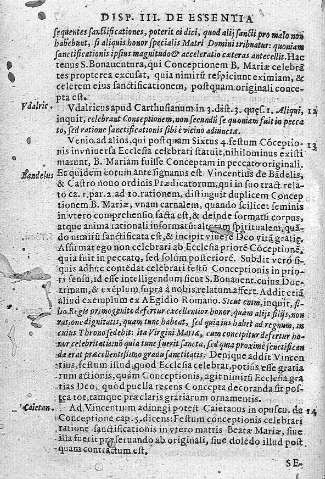 DISP. III. DE ESSENTIA
sequentes sanctificationes, poterit ei dici, quod alij sancti pro malo non
habebunt, si aliquis honor specialis Matri Domini tribuatur: quoniam
sanctificationis ipsius magnitudo & acceleratio cæteras antecellit. Hac
tenus S. Bonauentura, qui Conceptionem B. Mariæ celebra
tes propterea excusat, quia nimirũ respiciunt eximiam, &
celerem eius sanctificationem, postquam originali conce
pta est.
Vdalric. Vdalricus apud Carthusianum in 3. dist. 3. quæst. 1. Aliqui, 12
inquit, celebrant Conceptionem, non secundũ se quoniam fuit in pecca
to, sed ratione sanctificationis sibi è vicino adiuncta.
Venio ad alios, qui postquam Sixtus 4. festum Cõceptio 13
nis in vniuersa Ecclesia celebrari statuit, nihilominus existi
marunt, B. Mariam fuisse Conceptam in peccato originali.
Bandelus Et quidem eorum antesignanus est Vincentius de Bãdelis,
& Castro nouo ordinis Prædicatorum, qui in suo tract. rela
to ca. 1. par. 2. ad 10. rationem, distinguit duplicem Concep
tionem B. Mariæ, vnam carnalem, quando scilicet seminis
in vtero comprehensio facta est, & deinde formatũ corpus,
atque anima rationali informatũ: alteram spiritualem, quã
do in vtero sanctificata est, & incipit viuere Deo vita gratiæ.
Affirmat ergo non celebrari ab Ecclesia priorẽ Cõceptionẽ,
quia fuit in peccato, sed solùm posteriorẽ. Subdit verò si-
quis adhuc contẽdat celebrari festũ Conceptionis in prio-
ri sensu, id esse intelligendum sicut S. Bonauent. cuius Doc-
trinam, & exẽplum suprà à nobis relatum affert. Addit etiã
aliud exemplum ex Ægidio Romano. Sicut enim, inquit, fi-
lio Regis primogenito defertur excellentior honor, quàm alijs filijs, non
ratione dignitatis, quam tunc habeat, sed quia ius habet ad regnum, in
cuius Throno sedebit: ita Virgini Mariæ, cum concipitur defertur ho-
nor celebritatis nõ quia tunc fuerit sancta, sed quia proximè sanctifican
da erat præcellentissimo gradu sanctitatis. Denique addit Vincen
tius, festum illud, quod Ecclesia celebrat, potius esse gratia
rum actionis, quàm Conceptionis, agit nimirũ Ecclesia gra
tias Deo, quòd puella recens Concepta decoranda sit pos-
tea tot, tamque præclaris gratiarum ornamentis.
Caietan. Ad Vincentium adiungi potest Caietanus in opuscu. de 14
Conceptione cap. 5. dicens: Festum conceptionis celebrari
ratione sanctificationis in vtero matris Beatæ Mariæ, siue
illa fuerit præseruando ab originali, siue dolẽdo illud post
quam contractum est.
SE-